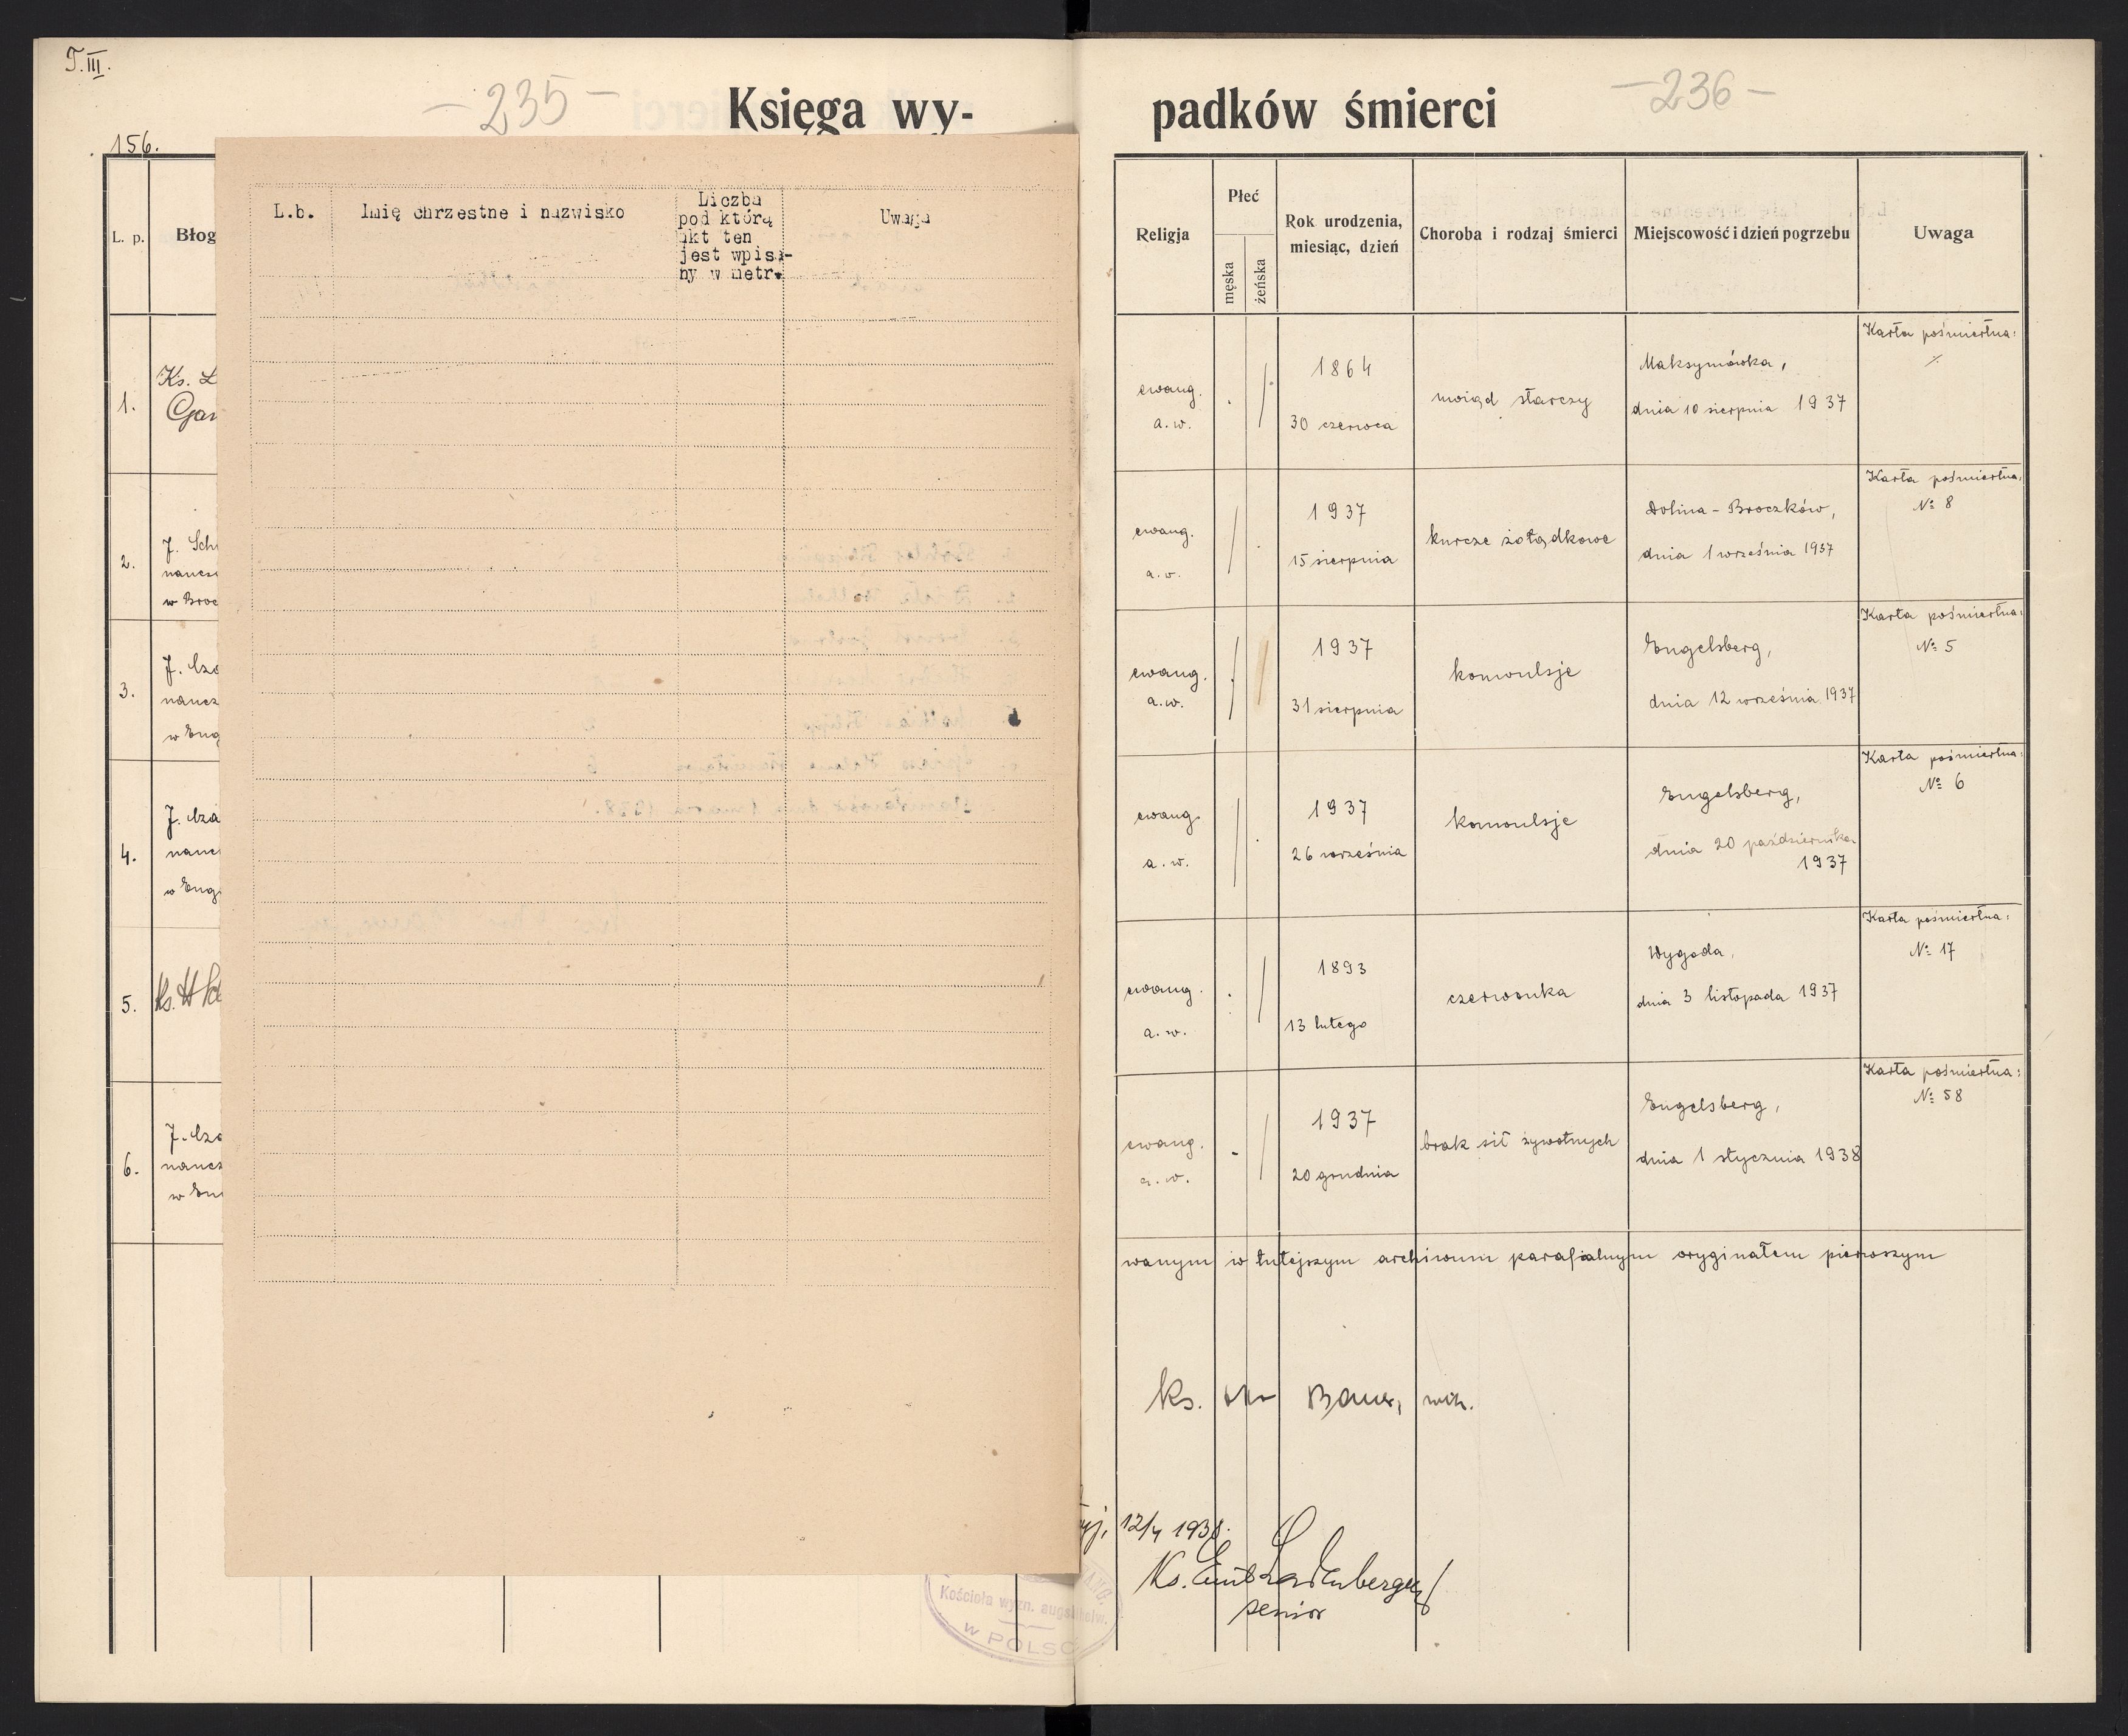 T. III.
— 235 —
Księga wy-
156.
L. p.
Błog
1.
Ks. L
Gar
2.
J. Sch
naucz
w Broc
3.
naucz
w Eng
4.
w Eng
5.
Ks. H
6.
naucz
w En
L.b.
Imię chrzestne i nazwisko
Liczba
pod którą
akt ten
jest wpisa-
ny w metr.
Uwaga
Kościoła wyzn. augs. i helw.
w POLSC
padków śmierci
— 236 —
Religja
Płeć
męska
żeńska
Rok urodzenia,
miesiąc, dzień
Choroba i rodzaj śmierci
Miejscowość i dzień pogrzebu
Uwaga
ewang.
a. w.
1864
30 czerwca
uwiąd starczy
Maksymówka,
dnia 10 sierpnia 1937
Karta pośmiertna:
ewang.
a. w.
1937
15 sierpnia
kurcze żołądkowe
Dolina - Broczków,
dnia 1 września 1937
Karta pośmiertna:
№ 8
ewang.
a. w.
1937
31 sierpnia
konwulsje
Engelsberg,
dnia 12 września 1937
Karta pośmiertna:
№ 5
ewang.
a. w.
1937
26 września
konwulsje
Engelsberg,
dnia 20 października
1937
Karta pośmiertna:
№ 6
ewang.
a. w.
1893
13 lutego
czerwonka
Wygoda,
dnia 3 listopada 1937
Karta pośmiertna:
№ 17
ewang.
a. w.
1937
20 grudnia
brak sił żywotnych
Engelsberg,
dnia 1 stycznia 1938
Karta pośmiertna:
№ 58
wanym w tutejszym archiwum parafialnym oryginałem pierwszym
Ks. Bauer,
12/4 1938.
Ks. Emil Ladenberger
senior